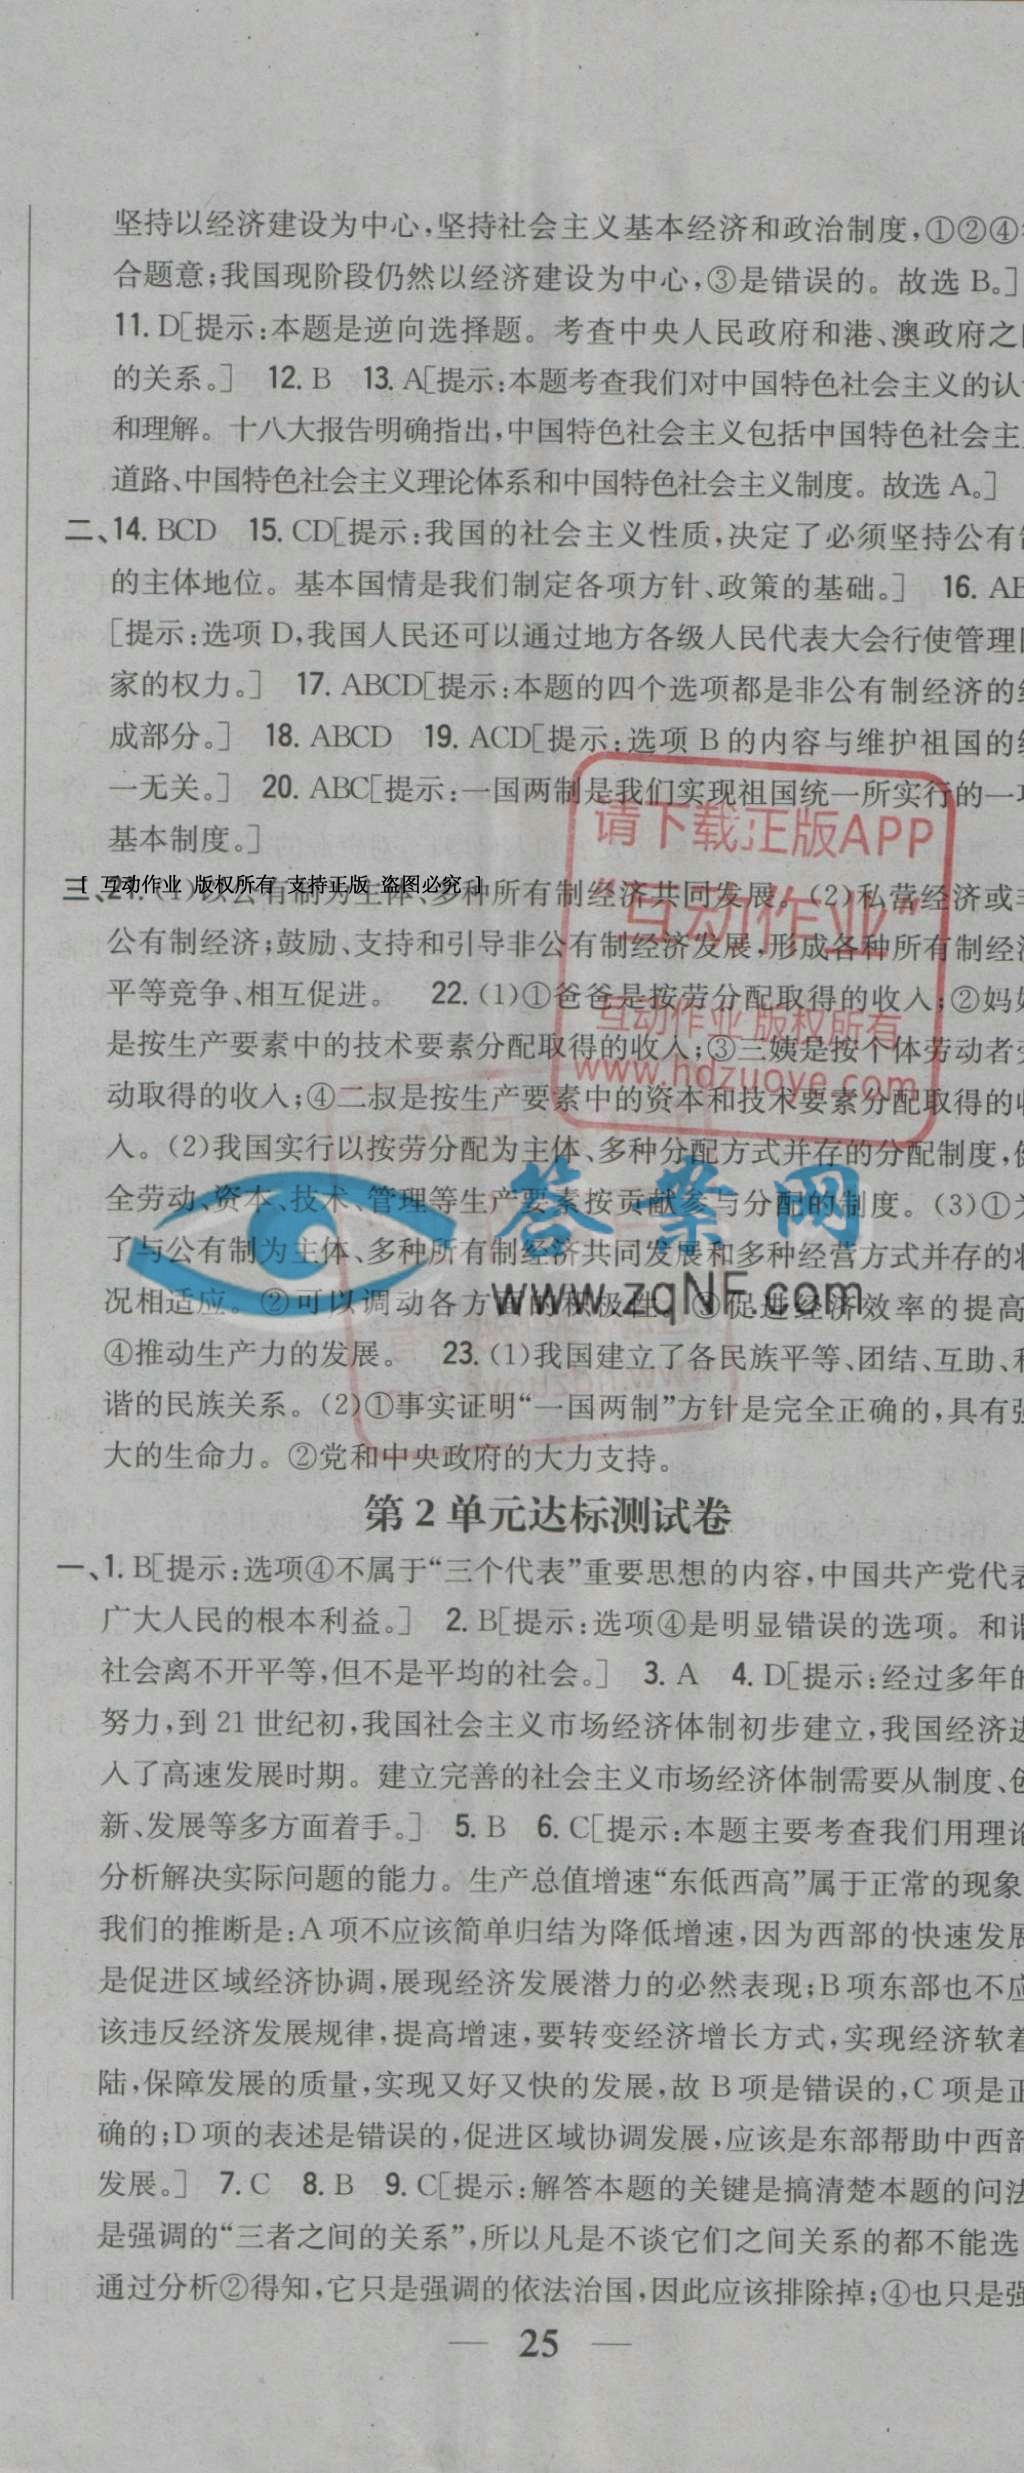 坚持以经济建设为中心,坚持社会主义基本经济和政治制度,①②④
合题意;我国现阶段仍然以经济建设为中心,③是错误的。故选 B。]
11. D[提示:本题是逆向选择题。考查中央人民政府和港、澳政府之
的关系。] 12. B 13. A[提示:本题考查我们对中国特色社会主义的认
和理解。十八大报告明确指出,中国特色社会主义包括中国特色社会主
道路、中国特色社会主义理论体系和中国特色社会主义制度。故选 A。]
二、14. BCD 15. CD[提示:我国的社会主义性质,决定了必须坚持公有
的主体地位。基本国情是我们制定各项方针、政策的基础。] 16. AB
[提示:选项 D,我国人民还可以通过地方各级人民代表大会行使管理
家的权力。] 17. ABCD[提示:本题的四个选项都是非公有制经济的
成部分。] 18. ABCD 19. ACD[提示:选项 B 的内容与维护祖国的
一无关。] 20. ABC[提示:一国两制是我们实现祖国统一所实行的一
基本制度。]
请下载正版APP
[ 互动作业 版权所有 支持正版 盗图必究 ]
三、21. (1)以公有制为主体、多种所有制经济共同发展。(2)私营经济或
"互动作业"
公有制经济;鼓励、支持和引导非公有制经济发展,形成各种所有制经
平等竞争、相互促进。 22. (1)①爸爸是按劳分配取得的收入;②妈
互动作业 版权所有
是按生产要素中的技术要素分配取得的收入;③三姨是按个体劳动者
www.hdzuoye.com
动取得的收入;④二叔是按生产要素中的资本和技术要素分配取得的
人。(2)我国实行以按劳分配为主体、多种分配方式并存的分配制度,
全劳动、资本、技术、管理等生产要素按贡献参与分配的制度。(3)①
答案网
了与公有制为主体、多种所有制经济共同发展和多种经营方式并存的
www.zqNF.com
况相适应。②可以调动各方面的积极性。③促进经济效率的提高
④推动生产力的发展。 23. (1)我国建立了各民族平等、团结、互助、
谐的民族关系。(2)①事实证明“一国两制”方针是完全正确的,具有
大的生命力。②党和中央政府的大力支持。
第 2 单元达标测试卷
一、1. B[提示:选项④不属于“三个代表”重要思想的内容,中国共产党代表
广大人民的根本利益。] 2. B[提示:选项④是明显错误的选项。和
社会离不开平等,但不是平均的社会。] 3. A 4. D[提示:经过多年的
努力,到 21 世纪初,我国社会主义市场经济体制初步建立,我国经济进
入了高速发展时期。建立完善的社会主义市场经济体制需要从制度、创
新、发展等多方面着手。] 5. B 6. C[提示:本题主要考查我们用理论
分析解决实际问题的能力。生产总值增速“东低西高”属于正常的现象
我们的推断是:A 项不应该简单归结为降低增速,因为西部的快速发展
是促进区域经济协调,展现经济发展潜力的必然表现;B 项东部也不应
该违反经济发展规律,提高增速,要转变经济增长方式,实现经济软着
陆,保障发展的质量,实现又好又快的发展,故 B 项是错误的,C 项是正
确的;D 项的表述是错误的,促进区域协调发展,应该是东部帮助中西部
发展。] 7. C 8. B 9. C[提示:解答本题的关键是搞清楚本题的问法
是强调的“三者之间的关系”,所以凡是不谈它们之间关系的都不能选
通过分析②得知,它只是强调的依法治国,因此应该排除掉;④也只是强
— 25 —